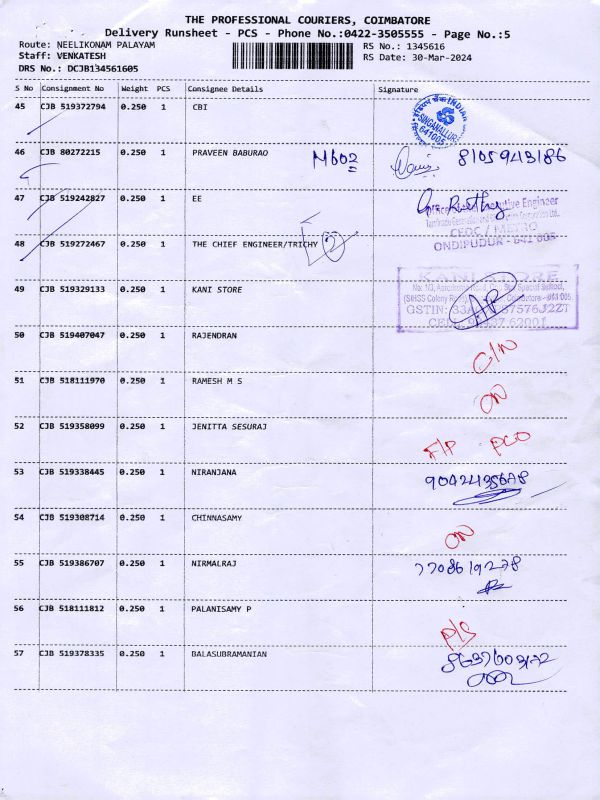 THE PROFESSIONAL COURIERS, COIMBATORE
Delivery Runsheet - PCS - Phone No.:0422-3505555 - Page No.:5
Route: NEELIKONAM PALAYAM RS No.: 1345616
Staff: VENKATESH RS Date: 30-Mar-2024
DRS No.: DCJB134561605
S No Consignment No Weight PCS Consignee Details Signature
45 CJB 519372794 0.250 1 CBI
INDIAN
SINGANALLUR
641005
46 CJB 80272215 0.250 1 PRAVEEN BABURAO M602 8105943186
47 CJB 519242827 0.250 1 EE
Executive Engineer
CEDC / METRO
ONDIPUDUR - 641 005
48 CJB 519272467 0.250 1 THE CHIEF ENGINEER/TRICHY 2
49 CJB 519329133 0.250 1 KANI STORE
KANI STORE
(SIHSS Colony Road), Coimbatore - 641 005.
GSTIN: 33A 7576J2ZT
50 CJB 519407047 0.250 1 RAJENDRAN
51 CJB 518111970 0.250 1 RAMESH M S
ON
52 CJB 519358099 0.250 1 JENITTA SESURAJ
F/P PCO
53 CJB 519338445 0.250 1 NIRANJANA
54 CJB 519308714 0.250 1 CHINNASAMY
ON
55 CJB 519386707 0.250 1 NIRMALRAJ
7708619278
56 CJB 518111812 0.250 1 PALANISAMY P
P/S
57 CJB 519378335 0.250 1 BALASUBRAMANIAN